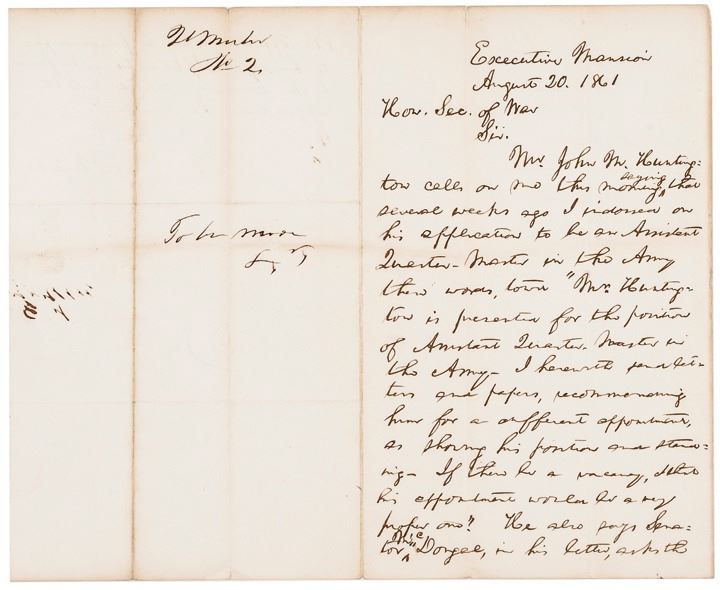 No 2.
Executive Mansion
August 20. 1861
Hon. Sec. of War
Sir.
Mr. John M. Hunting-
ton calls on me this morning, saying that
several weeks ago I indorsed on
his application to be an Assistant
Quarter-Master in the Army
these words, towit "Mr. Hunting-
ton is presented for the position
of Assistant Quarter-Master in
the Army- I herewith send let-
ters and papers, recommending
him for a different appointment,
as showing his position and stand-
ing- If there be a vacancy,
his appointment would be a very
proper one" He also says Sena-
tor McDougal, in his letter, asks the